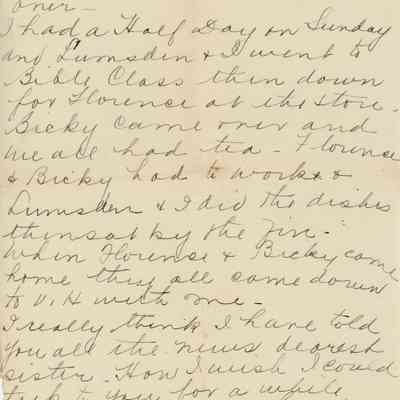 over -
I had a Half Day on Sunday
and Lumsden & I went to
Bible Class then down
for Florence at the Store.
Bicky came over and
we all had tea - Florence
& Bicky had to work & &
Lumsden & I did the dishes
then sat by the Fire -
When Florence & Bicky came
home they all came down
to V.H with me -
I really think I have told
you all the news dearest
sister. How I wish I could
talk to you for a while